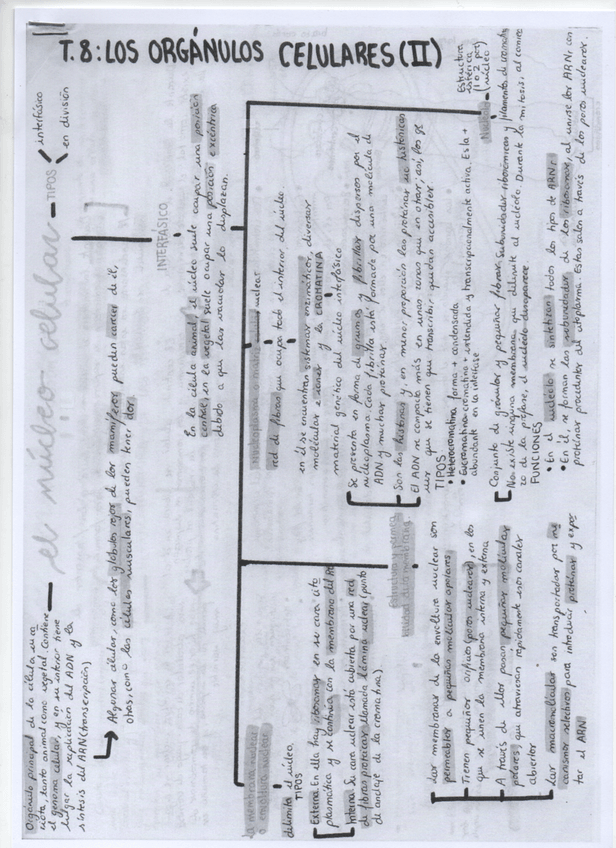 T.8: LOS ORGÁNULOS CELULARES (II)
Orgánulo principal de la célula euca
riota, tanto animal como vegetal. Contiene
el genoma celular, y en su interior tiene
lugar la replicación del ADN y la
síntesis del ARN (transcripción)
el núcleo celular — TIPOS
interfásico
en división
Algunas células, como los glóbulos rojos de los mamíferos pueden carecer de él,
otras, como las células musculares, pueden tener dos.
INTERFÁSICO
En la célula animal, el núcleo suele ocupar una posición
central, en la vegetal suele ocupar una posición excéntrica
debido a que las vacuolas lo desplazan.
La membrana nuclear
o envoltura nuclear
delimita el núcleo.
TIPOS
Externa. En ella hay ribosomas en su cara cito
plasmática y se continúa con la membrana del RE
Interna. Su cara nuclear está cubierta por una red
de fibras proteicas llamada lámina nuclear (punto
de anclaje de la cromatina)
Las membranas de la envoltura nuclear son
permeables a pequeñas moléculas apolares.
Tienen pequeños orificios (poros nucleares), en los
que se unen la membrana interna y externa
A través de ellos pasan pequeñas moléculas
polares, que atraviesan rápidamente esos canales
abiertos
Las macromoléculas son transportadas por me
canismos selectivos para introducir proteínas y expor
tar el ARN
Nucleoplasma o matriz nuclear
red de fibras que ocupa todo el interior del núcleo
en él se encuentran sistemas enzimáticos, diversas
moléculas e iones y la CROMATINA
material genético del núcleo interfásico
Se presenta en forma de grumos y fibrillas dispersos por el
nucleoplasma. Cada fibrilla está formada por una molécula de
ADN y muchas proteínas
Son las histonas y, en menor proporción las proteínas no histónicas
El ADN se compacta más en unas zonas que en otras; así, los ge
nes que se tienen que transcribir quedan accesibles
TIPOS
• Heterocromatina forma + condensada
• Eucromatina cromatina + extendida y transcripcionalmente activa. Es la +
abundante en la interfase
Nucléolo
Estructura
esférica
(1 o 2 por)
núcleo
Conjunto de gránulos y pequeñas fibras. Subunidades ribosómicas y filamentos de cromatina
No existe ninguna membrana que delimite al nucléolo. Durante la mitosis, al comien
zo de la profase, el nucléolo desaparece
FUNCIONES
• En el nucléolo se sintetizan todos los tipos de ARNr
• En él se forman las subunidades de los ribosomas, al unirse los ARNr con
proteínas procedentes del citoplasma. Estas salen a través de los poros nucleares.